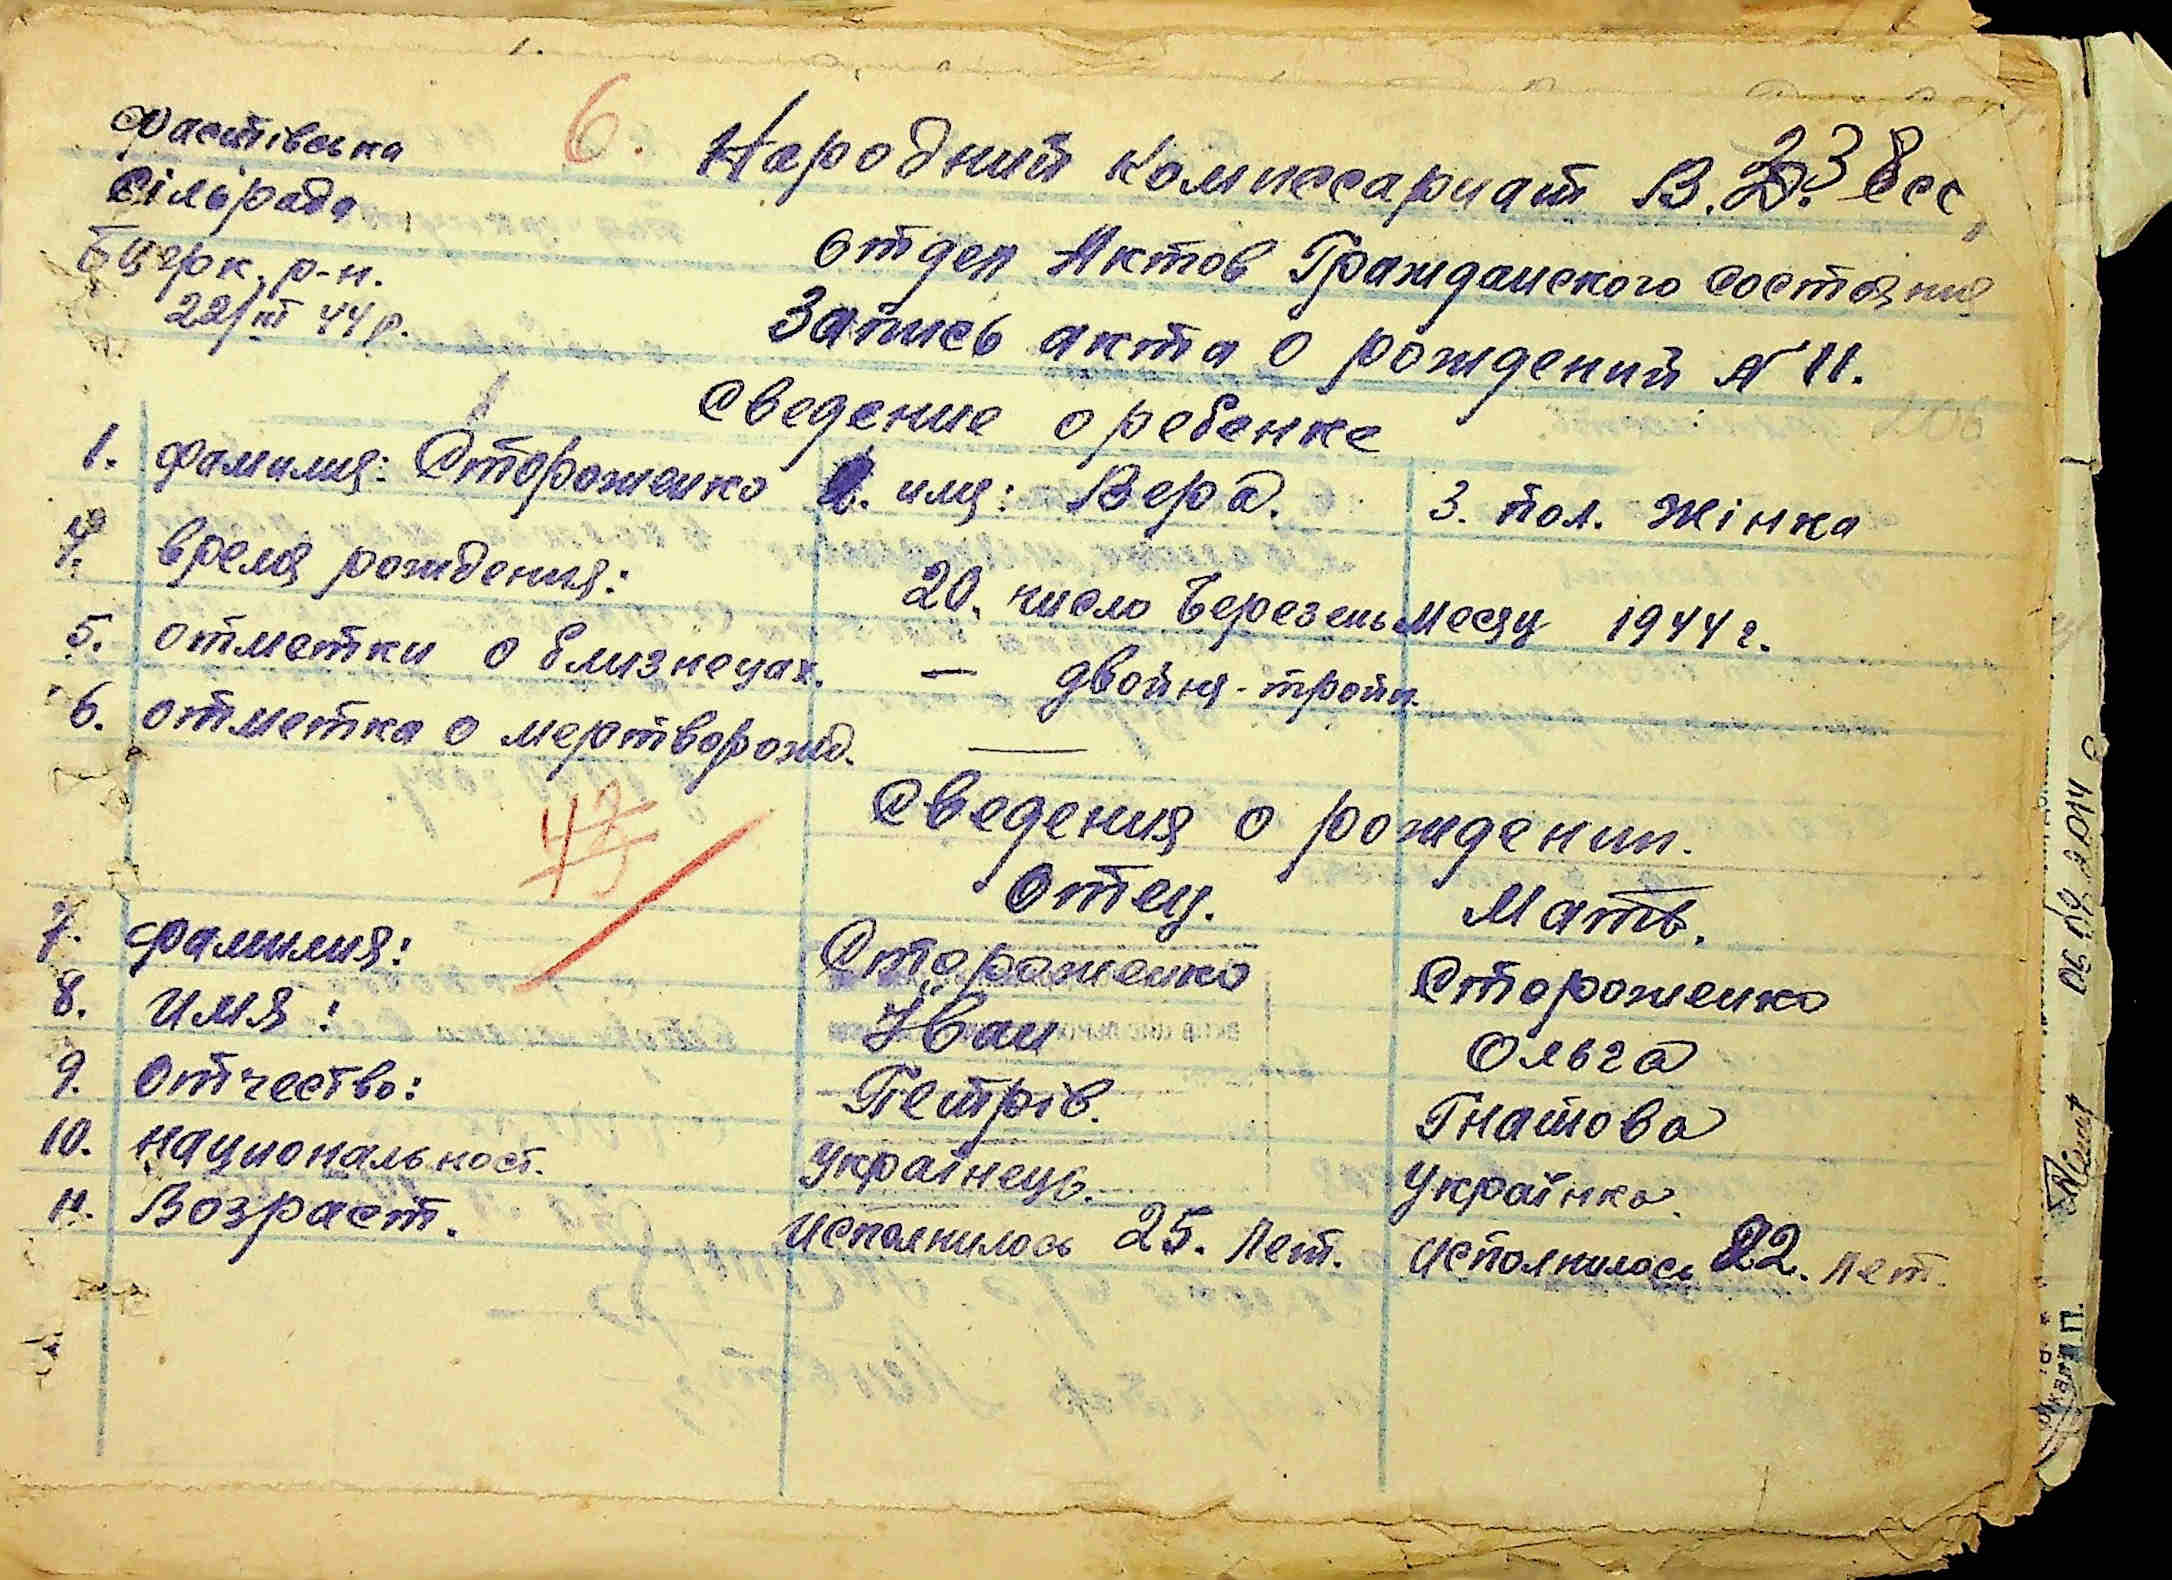 6.
238
Фастівська
Сільрада
Бцерк. р-н.
22/III 44 р.
Народний Комиссариат В.Д. ССС,
отдел Актов Гражданского состояния
Запись акта о рождений № 11.
Сведение о ребенке
1. фамилия: Стороженко 2. имя: Вера. 3. пол. Жінка
4. время рождения: 20. число Березень месяц 1944 г.
5. отметки о близнецах. — двойня-тройн.
6. отметка о мертворожд. —
Сведения о рождении.
Отец. Мать.
7. фамилия: Стороженко Стороженко
8. имя: Іван Ольга
9. Отчество: Петрів. Гнатова
10. национальност. Українець. Українка.
11. Возраст. исполнилось 25. лет. исполнилось 22. лет.